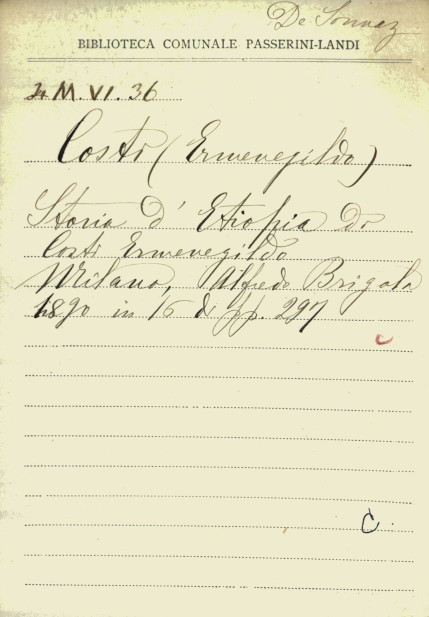 De Sonnaz
BIBLIOTECA COMUNALE PASSERINI-LANDI
24 M. VI. 36
Costi (Ermenegildo)
Storia d' Etiopia di
Costi Ermenegildo
Milano, Alfredo Brigola
1890 in 16 di pp. 297
C
C.